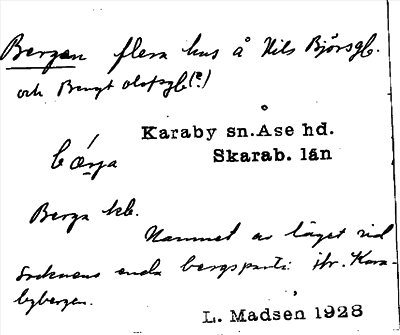 Bergen flera hus å Nils Björsgb.
och Bengt Olofsgb(?)
Karaby sn. Åse hd.
Skarab. län
bǽrja
Berga kb.
Namnet av läget vid
socknens enda bergsparti: ibr. Kara-
bybergen.
L. Madsen 1928